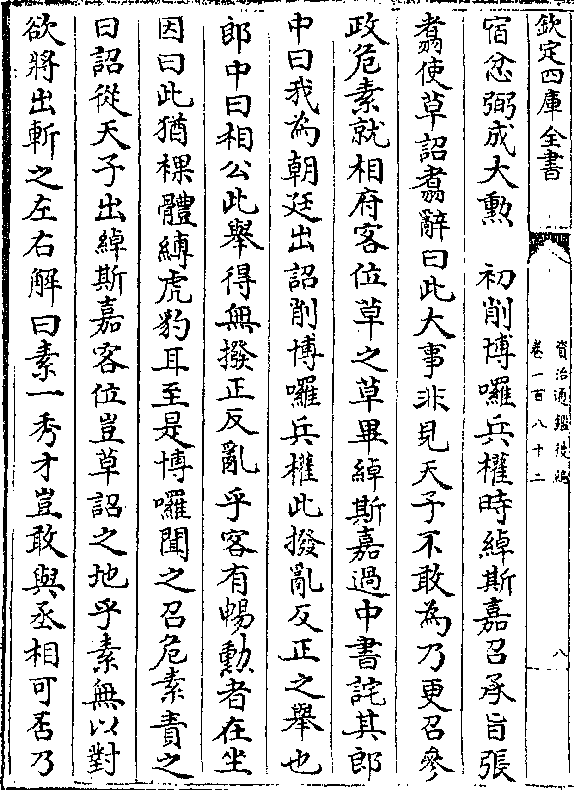 欽定四庫全書
資治通鑑後編
卷一百八十二
八
宿忿弼成大勲　初削博囉兵權時綽斯嘉召承旨張
翥使草詔翥辭曰此大事非見天子不敢為乃更召參
政危素就相府客位草之草畢綽斯嘉過中書詫其郎
中曰我為朝廷出詔削博囉兵權此撥亂反正之舉也
郎中曰相公此舉得無撥正反亂乎客有暢勲者在坐
因曰此猶裸體縛虎豹耳至是博囉聞之召危素責之
曰詔從天子出綽斯嘉客位豈草詔之地乎素無以對
欲將出斬之左右解曰素一秀才豈敢與丞相可否乃